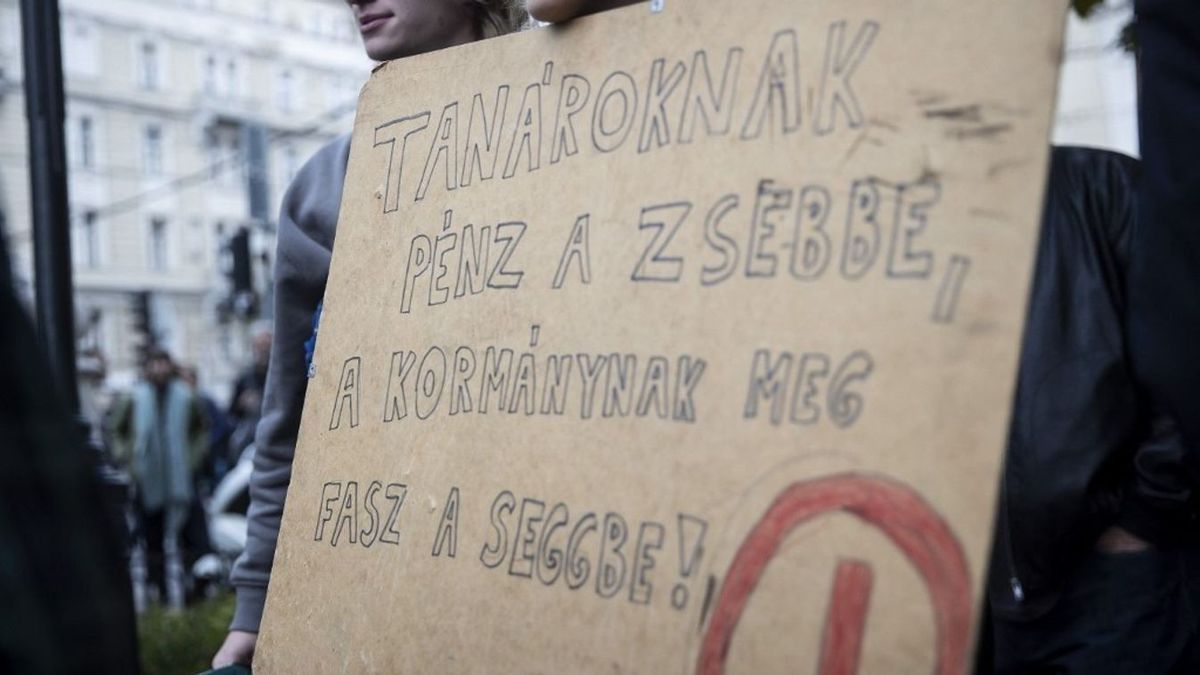 TANÁROKNAK
PÉNZ A ZSEBBE,
A KORMÁNYNAK MEG
FASZ A SEGGBE!